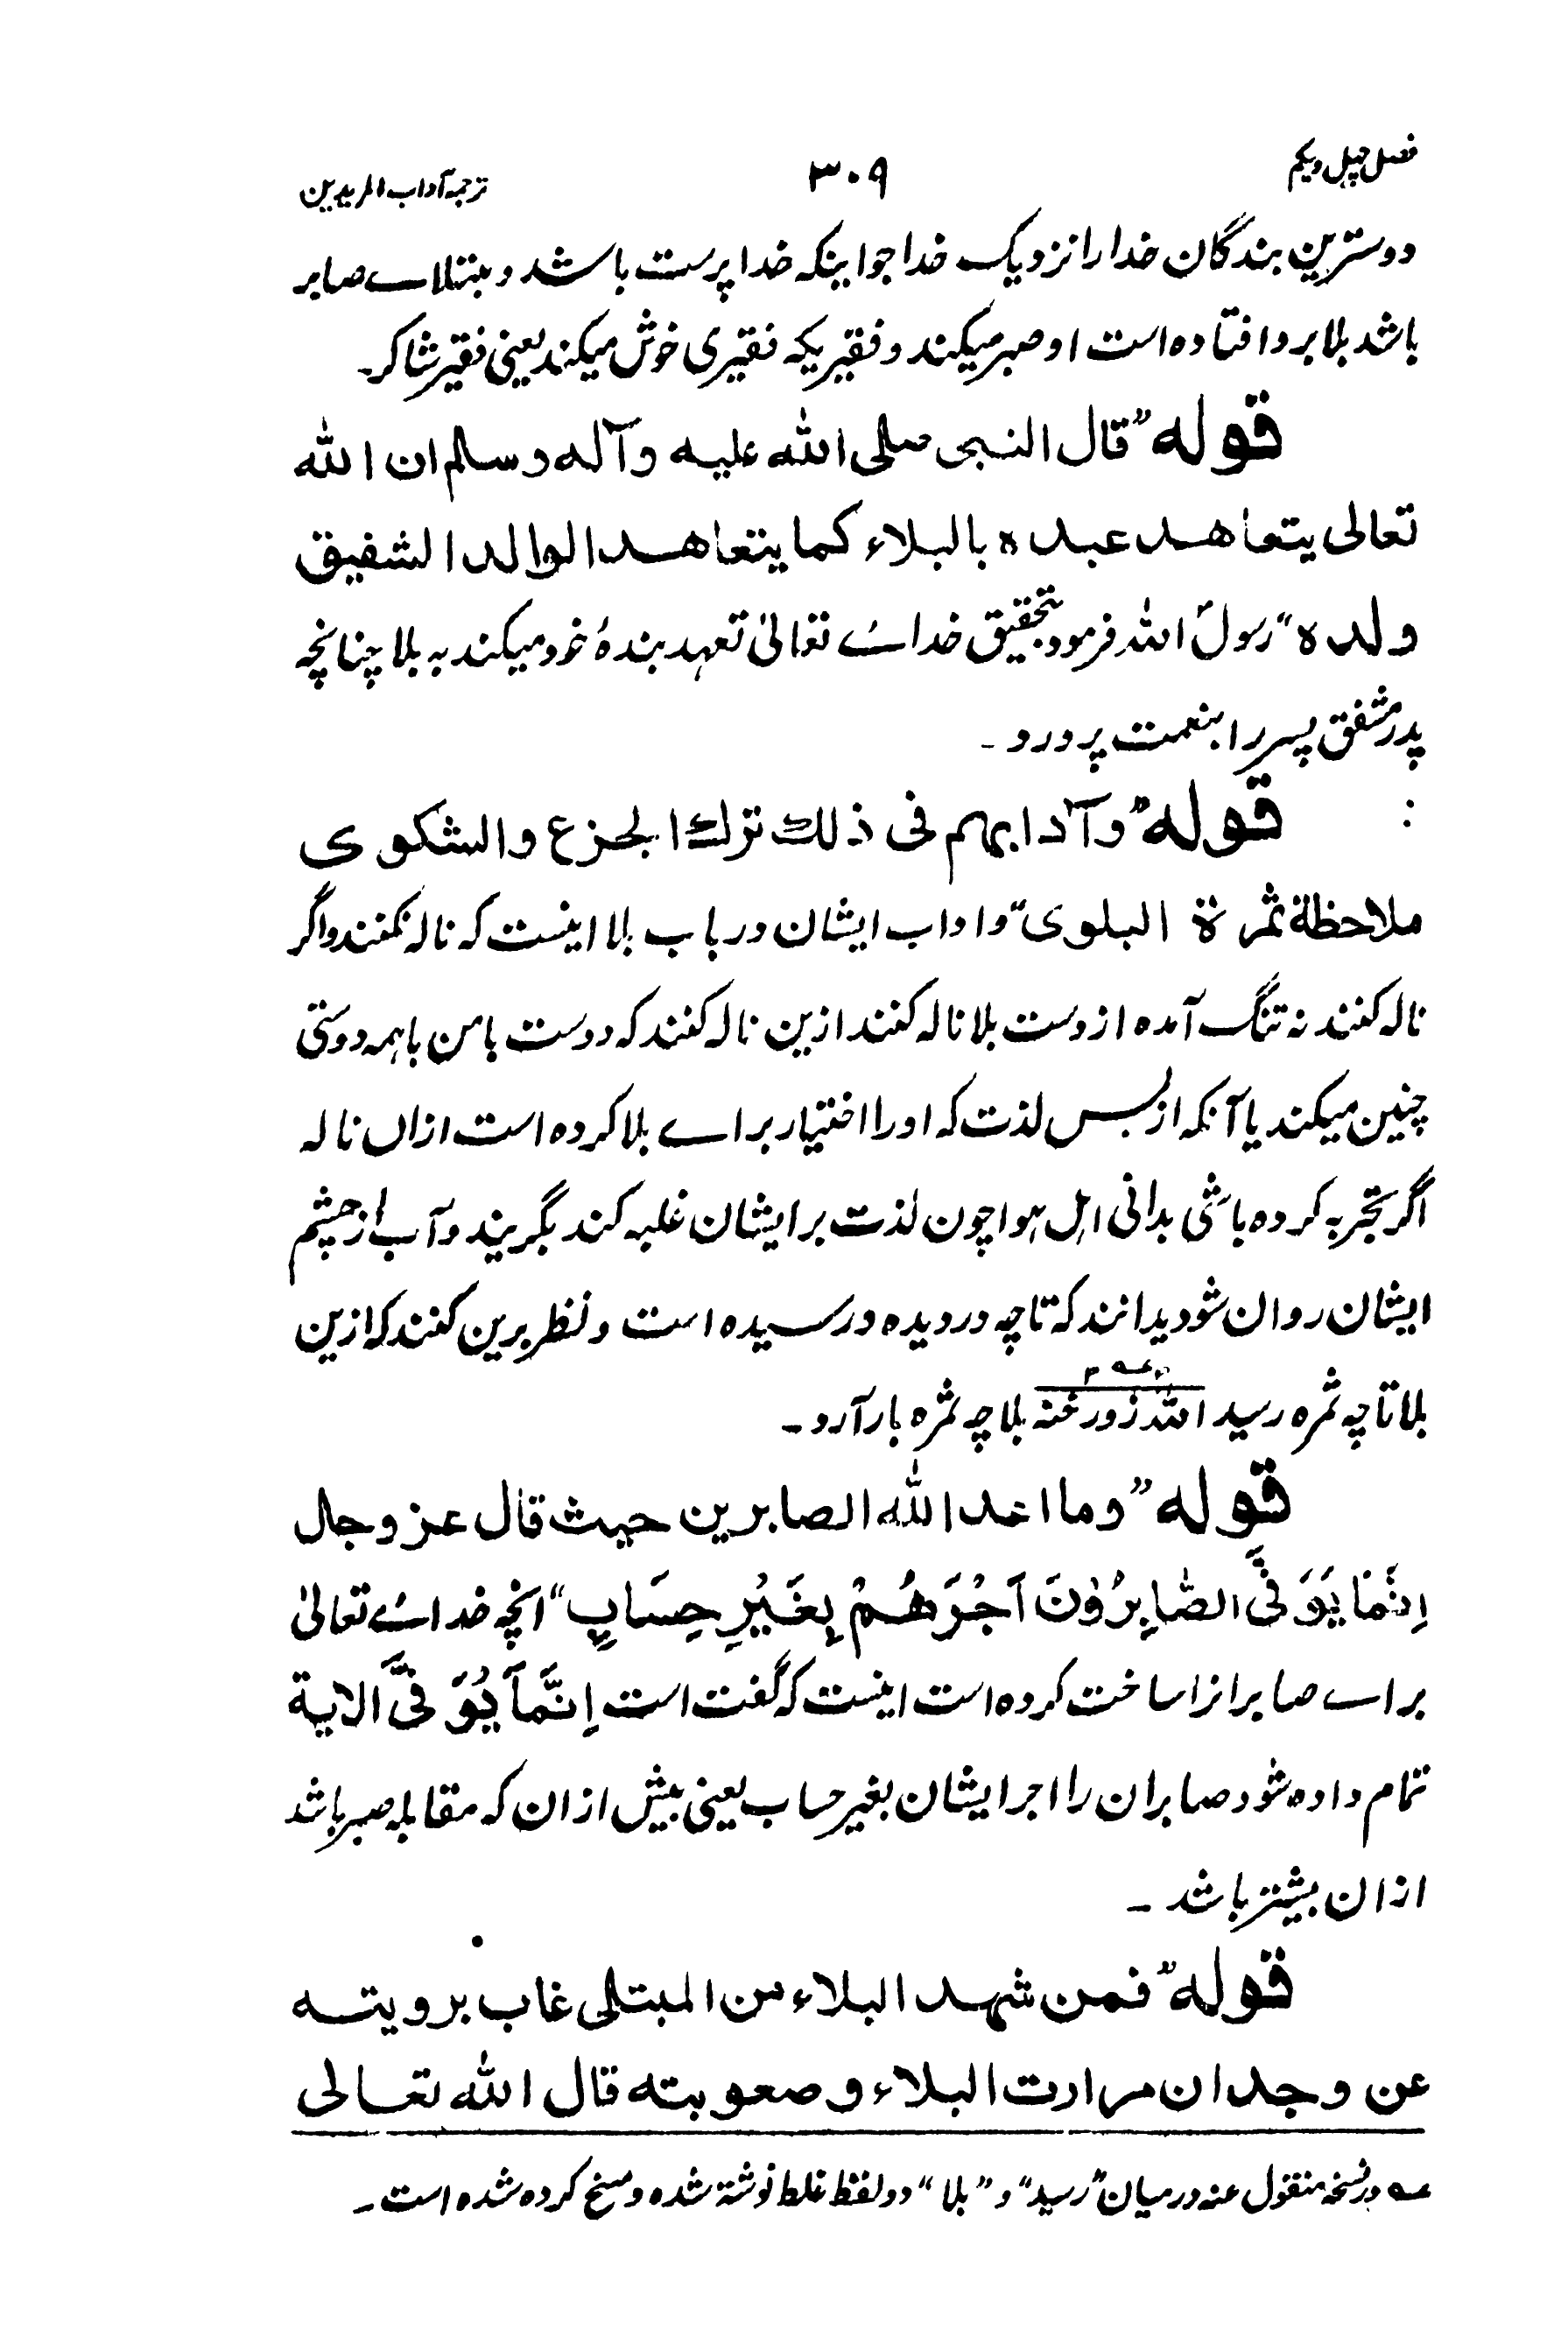 فصل چہل ویکم
۳۰۹
ترجمہ آداب المریدین
دوسترین بندگان خدا را نزدیک خدا جوا ینکہ خدا پرست باشد و مبتلاے صابر
باشد بلا برو افتادہ است او صبر میکند و فقیریکہ فقیری خوش میکند یعنی فقیر شاکر۔
قولہ ”قال النبی صلی اللہ علیہ وآلہ وسلم ان اللہ
تعالی یتعاھد عبدہ بالبلاء کما یتعاھد الوالد الشفیق
ولدہ“ رسولؐ اللہ فرمود بتحقیق خداے تعالیٰ تعہد بندۂ خود میکند بہ بلا چنانچہ
پدر مشفق پسر را بنعمت پرورد ۔
قولہ ”وآدابہم فی ذلك ترك الجزع والشکوی
ملاحظة ثمرة البلوی“ واداب ایشان در باب بلا اینست کہ نالہ نکنند واگر
نالہ کنند نہ تنگ آمدہ از دست بلا نالہ کنند ازین نالہ کنند کہ دوست با من با ہمہ دوستی
چنین میکند یا آنکہ از بس لذت کہ او را اختیار براے بلا کردہ است ازاں نالہ
اگر تجربہ کردہ باشی بدانی اہل ہوا چون لذت بر ایشان غلبہ کند بگریند و آب از چشم
ایشان روان شود بدانند کہ تا چہ در دیدہ در رسیدہ است و نظر برین کنند کہ ازین
بلا تا چہ ثمرہ رسید اللہ بلا چہ ثمرہ بار آرد ۔
قولہ ”وما اعد اللہ الصابرین حیث قال عز وجل
اِنَّمَا یُوَفَّی الصّٰابِرُوْنَ اَجْرَھُمْ بِغَیْرِ حِسَابٍ“ آنچہ خداے تعالیٰ
براے صابرانرا ساخت کردہ است اینست کہ گفت است اِنَّمَا یُوَفَّی الایة
تمام دادہ شود صابران را اجر ایشان بغیر حساب یعنی بیش ازان کہ مقابلہ صبر باشد
ازان بیشتر باشد ۔
قولہ ”فمن شہد البلاء من المبتلی غاب برویتہ
عن وجدان مرارت البلاء و صعوبتہ قال اللہ تعالی
عہ در نسخہ منقول عنہ درمیان ”رسید“ و ”بلا“ دو لفظ غلط نوشتہ شدہ و مسخ کردہ شدہ است ۔